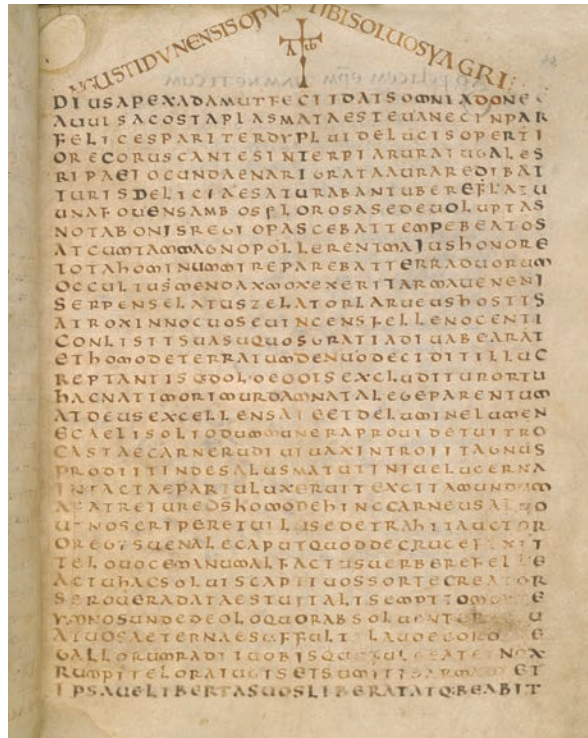 AUGUSTIDVNENSISOPVSTIBISOLVOSYAGRI
DIUSAPEXADAMUTFECITDATSOMNIADONEC
AUULSACOSTAPLASMATAESTEUANECINPAR
FELICESPARITERDYPLUIDELUCISOPERTI
ORECORUSCANTESINTERPIARURAIUGALES
RIPAEIOCUNDAENARIGRATAAURAREDIBAT
TURISDELICIAESATURABANTUBEREFLATU
UNAFOUENSAMBOSFLOROSASEDEUOLUPTAS
NOTABONISREGIOPASCEBATTEMPEBEATOS
ATCUMTAMMAGNOPOLLERENTMAIUSHONORE
TOTAHOMINUMMIREPAREBATTERRADUORUM
OCCULTUSMENDAXMOXEXERITARMAUENENI
SERPENSELATUSZELATORLARUEUSHOSTIS
ATROXINNOCUOSEUINCENSFELLENOCENTI
CONLISITSUASUQUOSGRATIADIUABEARAT
ETHOMODETERRATUMDENUODECIDITILLUC
REPTANTISQDOLOEOOISEXCLUDITURORTU
HACNATIMORIMURDAMNATALEGEPARENTUM
ATDEUSEXCELLENSAIEETDELUMINELUMEN
ECAELISOLIODUMMUNERAPROUIDETUITRO
CASTAECARNERUDIUIUAXINTROIITAGNUS
PRODIITINDESALUSMATUTINIUELUCERNA
INTACTAEPARTULUXERUITEXCITAMUNDUM
APATREIUREDSHOMODEHINCCARNEUSALUO
UTNOSERIPERETUILISEDETRAHITAUCTOR
OREGISUENALECAPUTQUODDECRUCEFIXIT
TELOUOCEMANUMALFACTUSUERBEREFELLE
ACTUHACSOLUISCAPTIUOSSORTECREATOR
SEROUERADATAESTUITALISEMPTIOMORTE
YMNOSUNDEDEOLOQUORABSOLUENTEREATU
ATUOSAETERNAESUFFULTILAUDECORONAE
GALLORUMRADIIUOBISQUOFULGEATETNOX
RUMPITELORAIUGISETSUMITISARMADIEI
IPSAUELIBERTASUOSLIBERATATQ:BEABIT